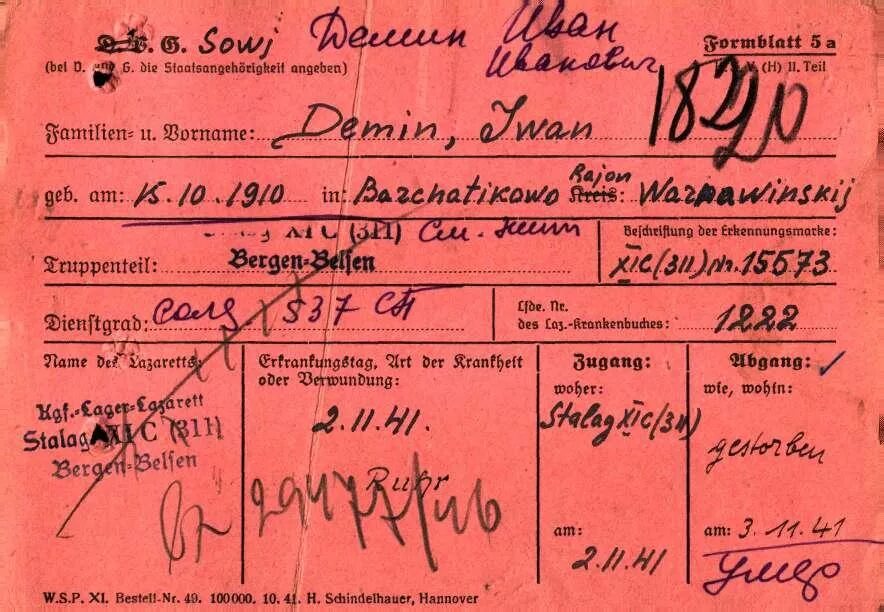 D. u. G. Sowj Демин Иван
Иванович
Formblatt 5a
(bei D. und G. die Staatsangehörigkeit angeben)
(H) II. Teil
Familien- u. Vorname: Demin, Iwan
geb. am: 15.10.1910 in: Barchatikowo Rajon Kreis: Warnawinskij
XI C (311)
Beschriftung der Erkennungsmarke:
Truppenteil: Bergen-Belsen
XIC(311) Nr. 15573
Dienstgrad: солд 537 СП
Lfde. Nr.
des Laz.-Krankenbuches: 1222
Name des Lazaretts:
Kgf.-Lager-Lazarett
Stalag XI C (311)
Bergen-Belsen
Erkrankungstag, Art der Krankheit
oder Verwundung:
2.11.41.
Ruhr
29477/46
Zugang:
woher:
Stalag XIC(311)
am:
2.11.41
Abgang:
wie, wohin:
gestorben
am: 3.11.41
умер
W.S.P. XI. Bestell-Nr. 49. 100000. 10. 41. H. Schindelhauer, Hannover